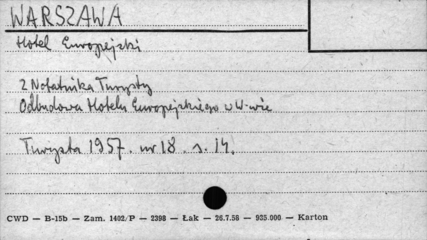 WARSZAWA
Hotel Europejski
Z Notatnika Turysty
Odbudowa Hotelu Europejskiego w W-wie
Turysta 1957. nr 18. s. 14.
CWD — B-15b — Zam. 1402/P — 2398 — Łak — 26.7.58 — 935.000 — Karton